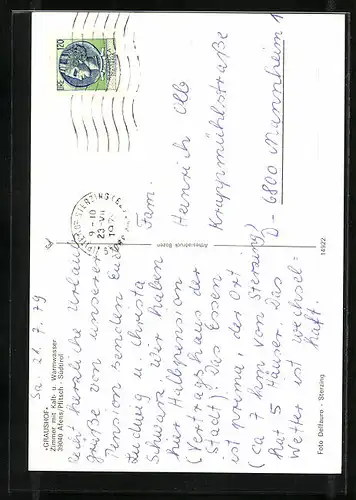 «GRAUSHOF»
Zimmer mit Kalt- u. Warmwasser
39040 Afens/Pfitsch - Südtirol
Sa 21.7.79
Recht herzliche Urlaubs
grüße von unserer
Pension senden Euch
Ludwig u. Christa
Schwarz. Wir haben
hier Halbpension
(Vertragshaus der
Stadt). Das Essen
ist prima, der Ort
(ca 7 km von Sterzing)
hat 5 Häuser. Das
Wetter ist wechsel-
haft.
Amerdruck Bozen
14922
Foto Delfauro - Sterzing
120
9-10
23.VII
197
STERZING
Fam.
Heinrich Olb
Krappmühlstraße
D-6800 Mannheim 1